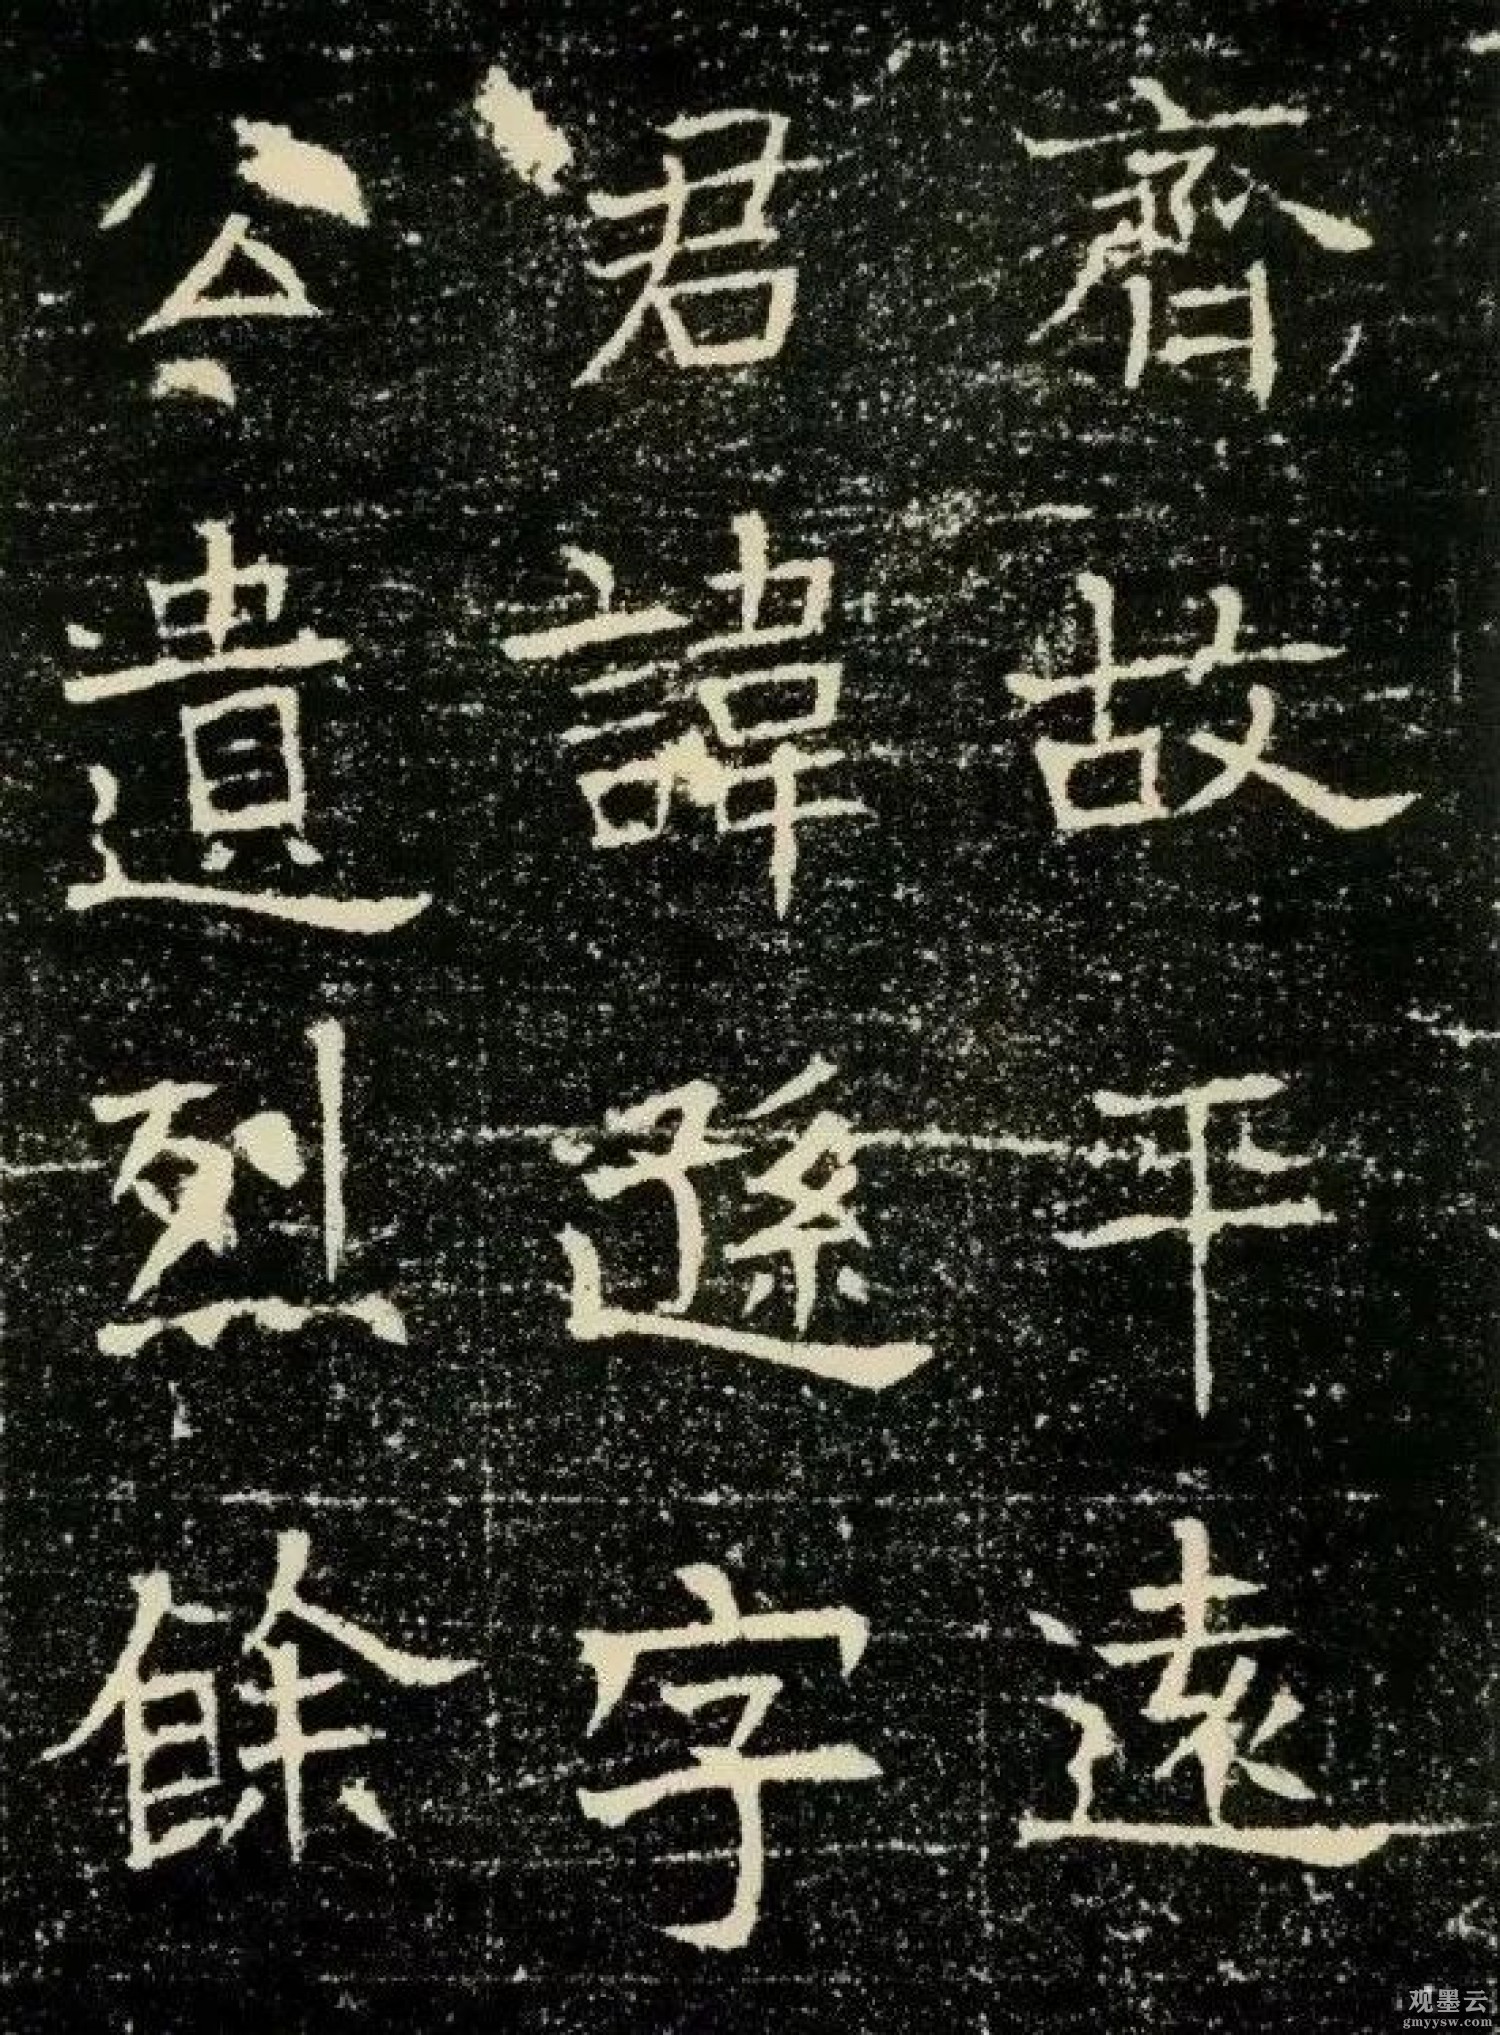 齊故平遠
君諱遜字
公遺烈餘
观墨云
gmyysw.com